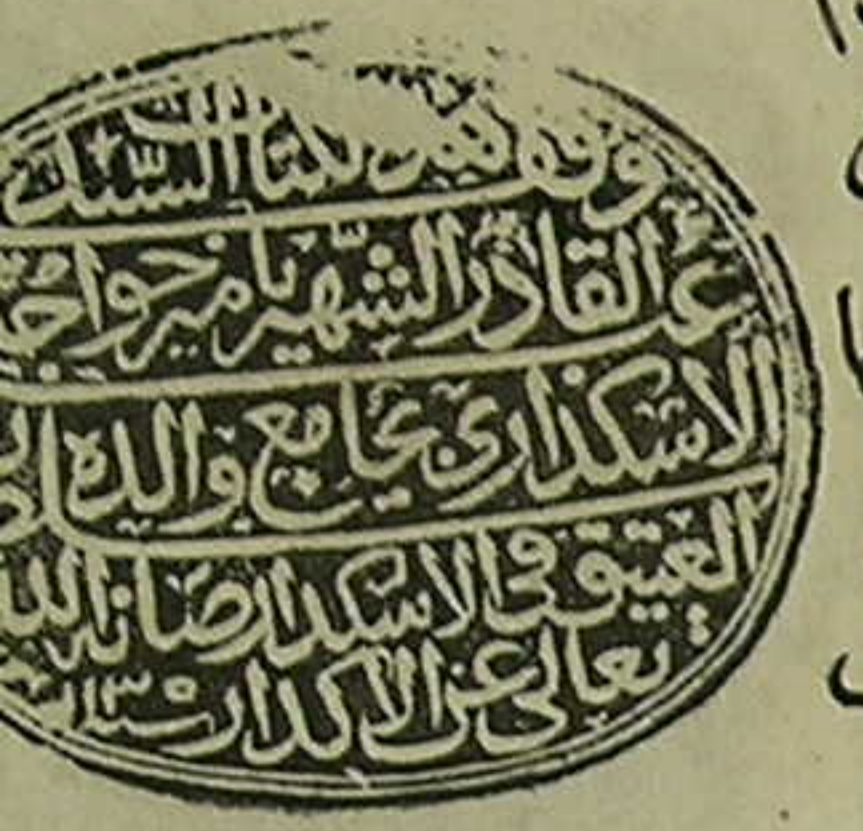 وقف هذا الكتاب السيد
عبد القادر الشهير بامير خواجه
الاسكداري بجامع والده
العتيق في الاسكدار صانه الله
تعالى عن الاكدار سنه